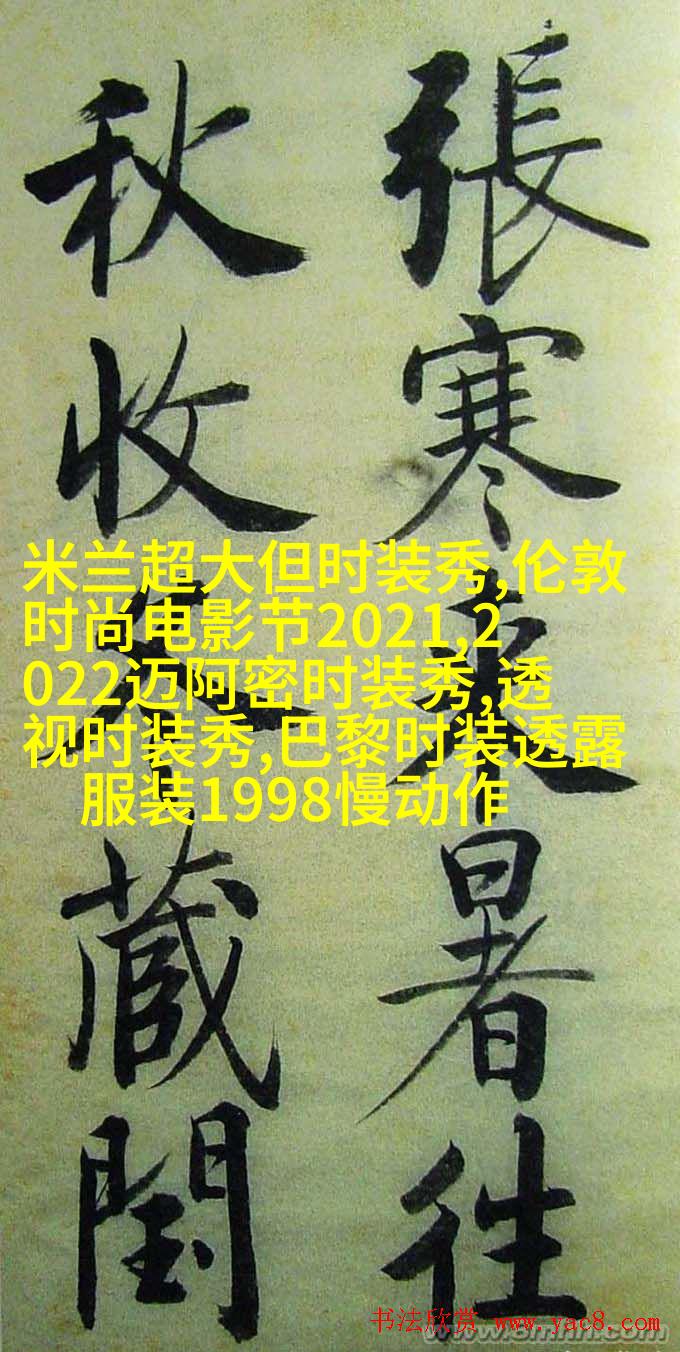 張寒来暑往
秋收冬藏閏
米兰超大但时装秀,伦敦
时尚电影节2021,2
022迈阿密时装秀,透
视时装秀,巴黎时装透露
服装1998慢动作
书法欣赏 www.yac8.com